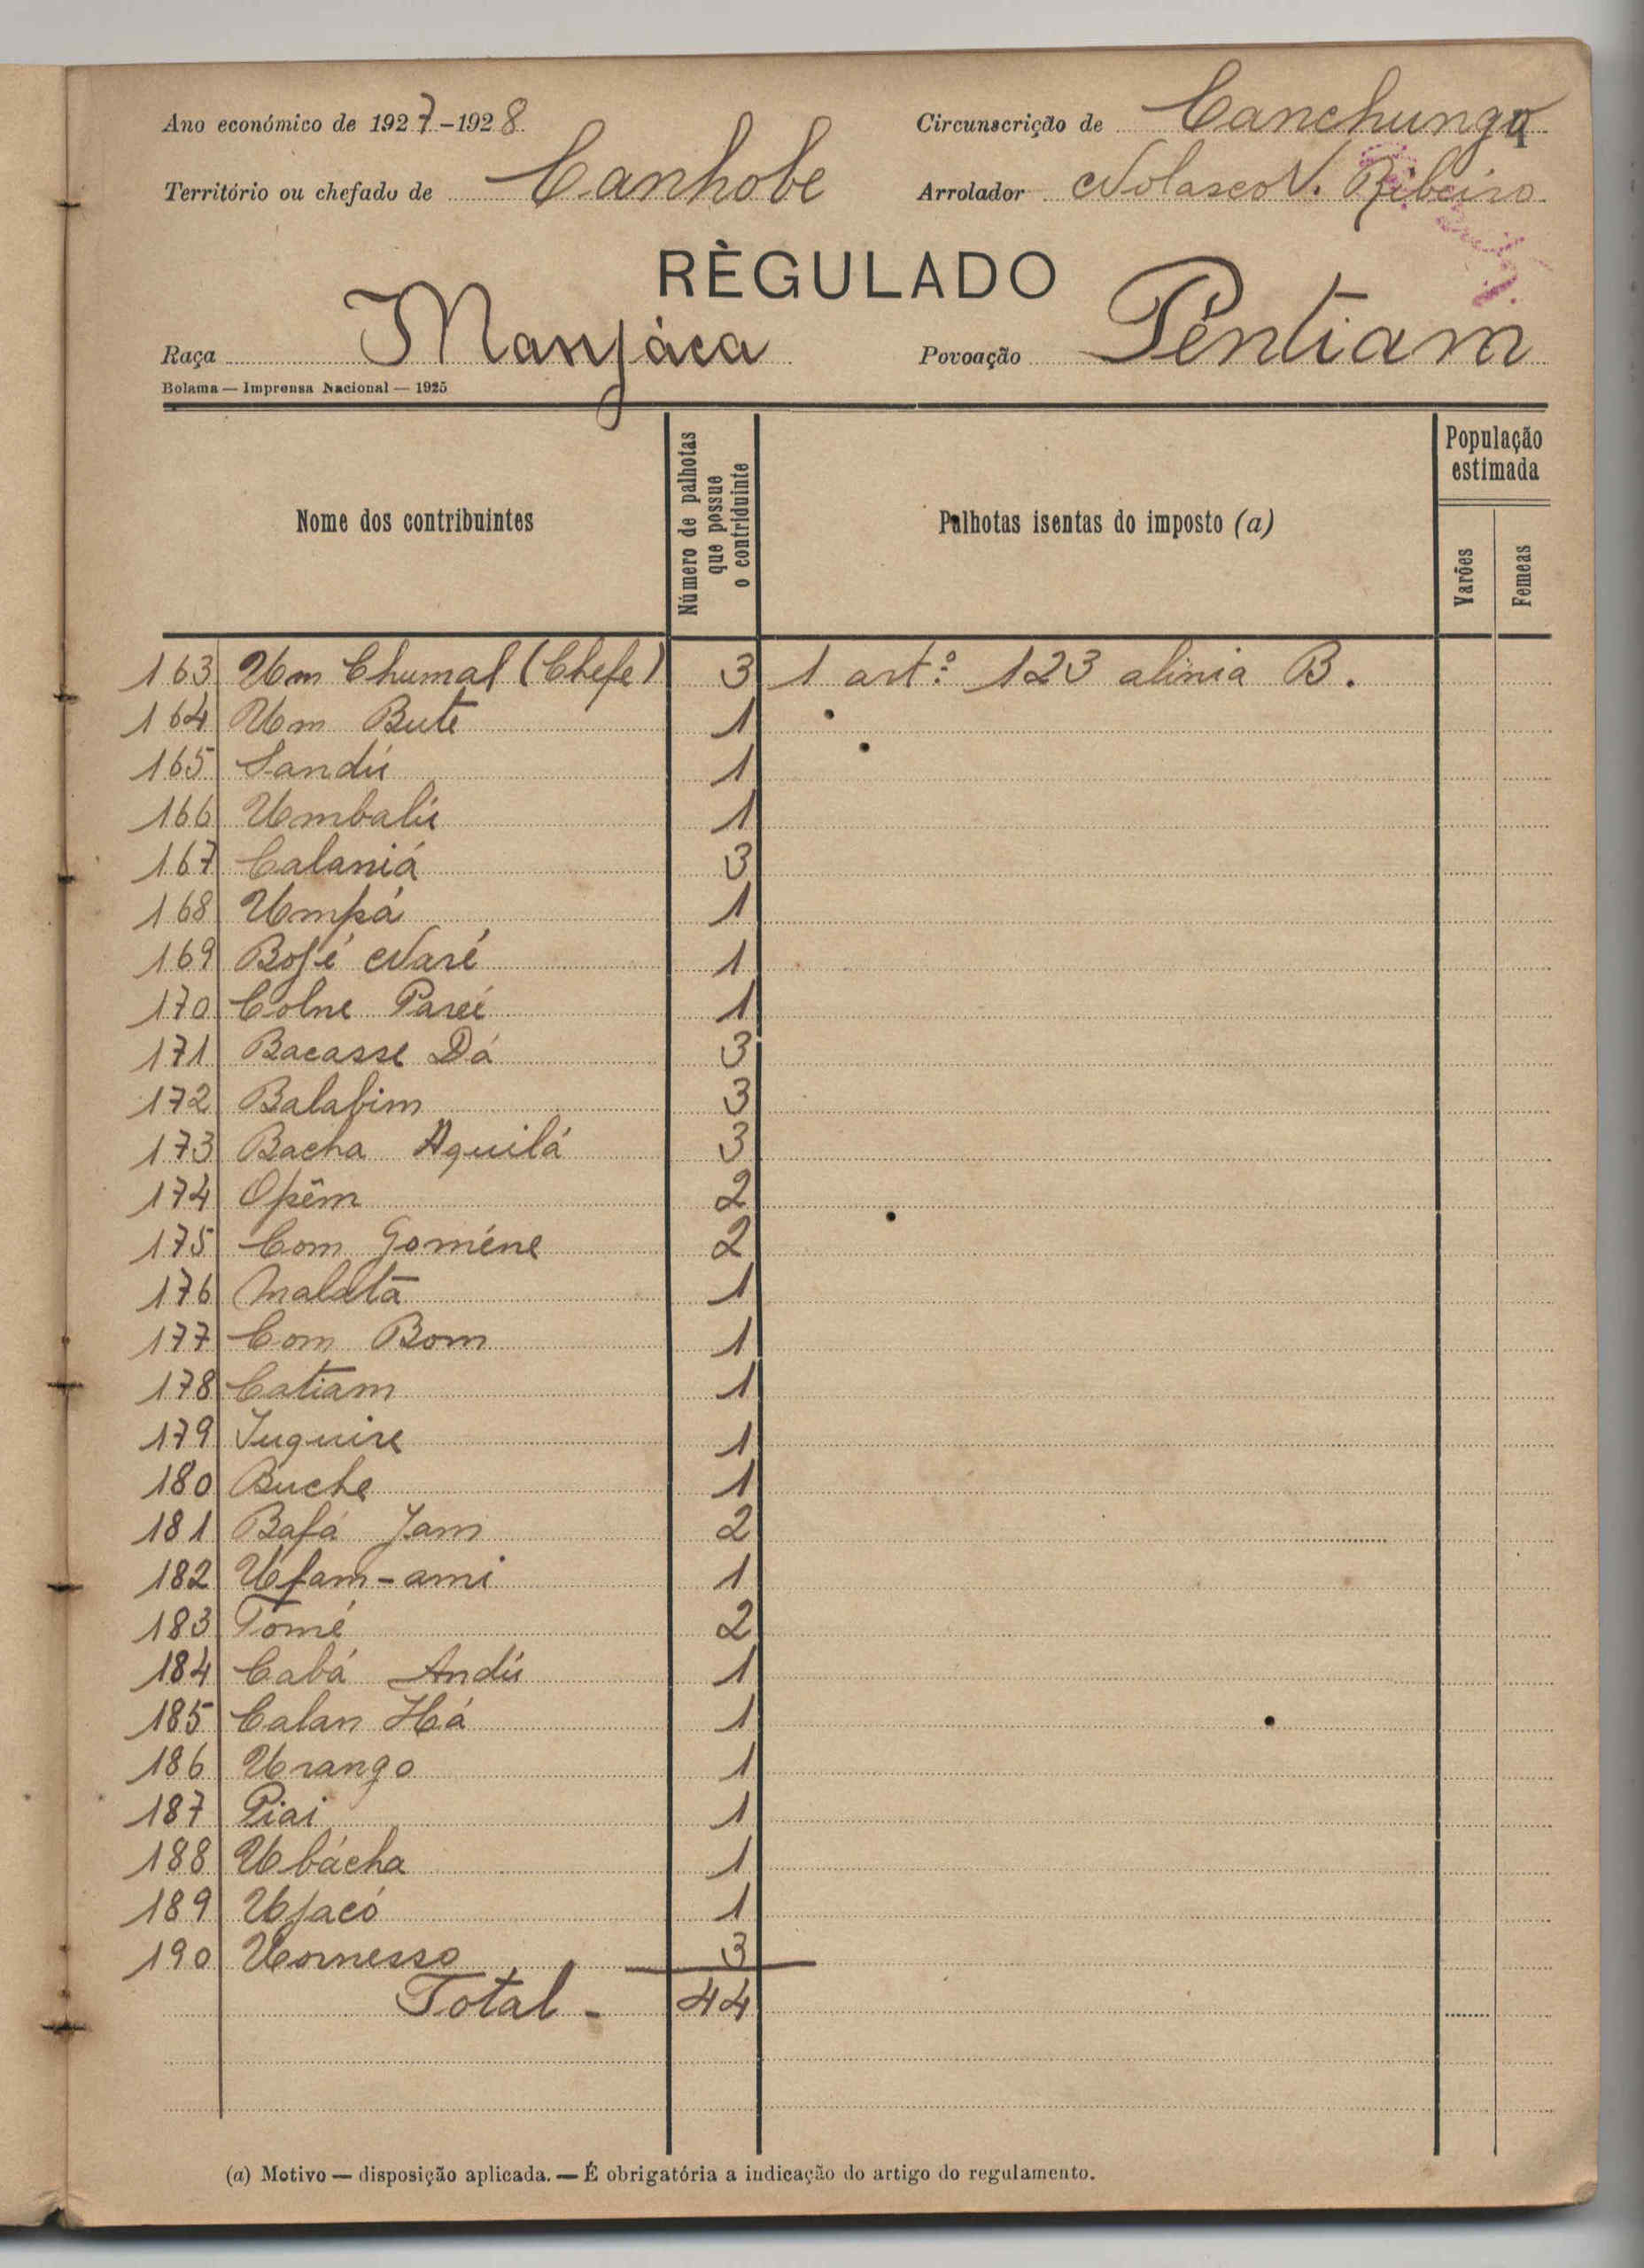 Ano económico de 1927-1928
Circunscrição de Canchungo
Território ou chefado de Canhobe
Arrolador Nolasco V. Ribeiro
RÈGULADO
Raça Manjáca
Povoação Pêntiam
Bolama — Imprensa Nacional — 1925
Nome dos contribuintes
Número de palhotas que possue o contriduinte
Palhotas isentas do imposto (a)
População estimada
Varões
Femeas
163 Um Chumal (Chefe) 3 1 art.º 123 alinia B.
164 Um Bute 1
165 Sandú 1
166 Umbalú 1
167 Calaniá 3
168 Umpá 1
169 Bofé Naré 1
170 Colne Pareé 1
171 Bacasse Dá 3
172 Balabim 3
173 Bacha Aquilá 3
174 Opêm 2
175 Com Goméne 2
176 Malata 1
177 Com Bom 1
178 Catiam 1
179 Juquire 1
180 Buche 1
181 Bafá Jam 2
182 Ufam-ami 1
183 Tomé 2
184 Cabá Andú 1
185 Calan Há 1
186 Urango 1
187 Piai 1
188 Ubácha 1
189 Ujacó 1
190 3
Total - 44
(a) Motivo — disposição aplicada. — É obrigatória a indicação do artigo do regulamento.